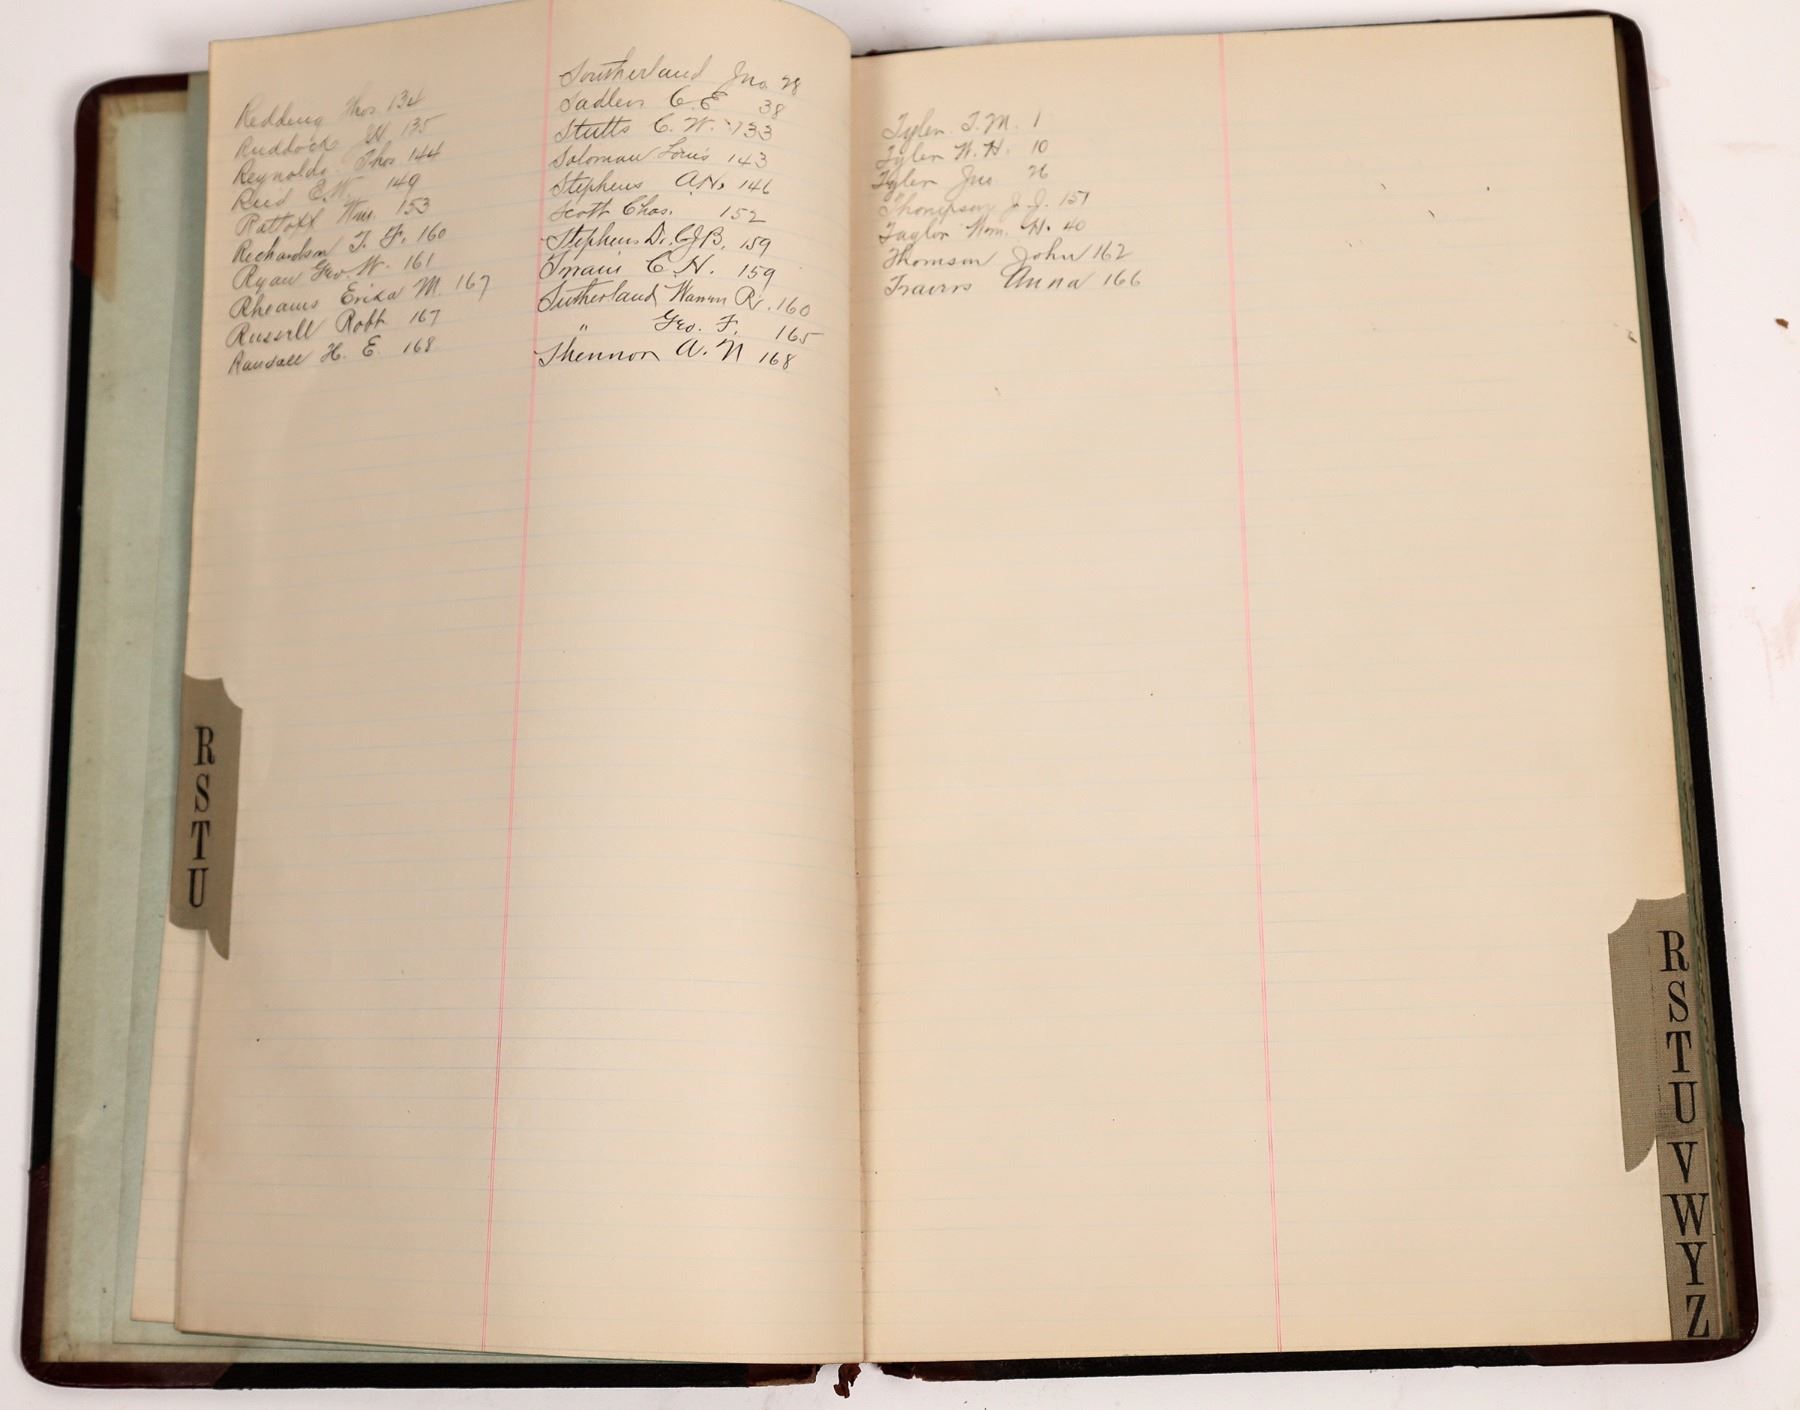 Redding Thos. 134
Ruddock 135
Reynolds Thos 144
Reid E.W. 149
Wm. 153
Richardson T. F. 160
Ryan Geo. W. 161
Rheams M. 167
Russell Robt 167
Randall H. E. 168
Southerland Jno. 28
Sadler C. E 38
Stutts C. W. 133
Soloman Louis 143
Stephens A.N. 146
Scott Chas. 152
Stephens Dr. C.J.B. 159
C. H. 159
Sutherland Warren R. 160
" Geo. F. 165
Shennon A. N 168
Tyler T. M. 1
Tyler W. H. 10
Tyler Jno. 26
Thompson J. J. 151
Taylor Wm. H. 40
Thomson John 162
Travers Anna 166
R
S
T
U
R
S
T
U
V
W
Y
Z